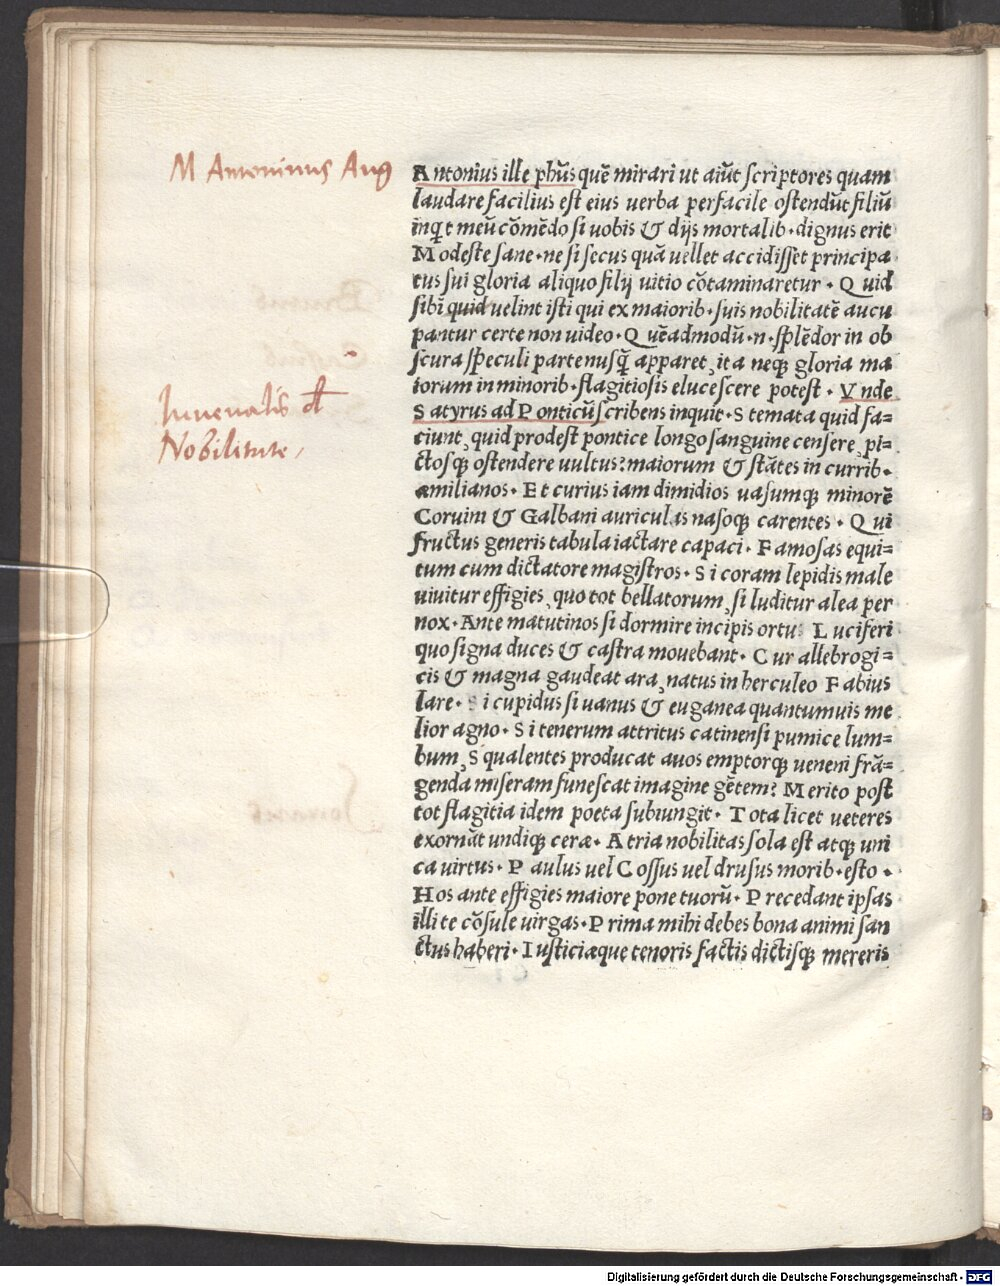 M Antoninus Aug
Antonius ille phūs quē mirari ut aiūt scriptores quam
laudare facilius est eius uerba perfacile ostendūt filiū
inq̇t meū cōmēdo si uobis & dijs mortalib·dignus erit
Modeste sane·ne si secus quā uellet accidisset principa
tus sui gloria aliquo filij uitio cōtaminaretur · Quid
sibi quid uelint isti qui ex maiorib·suis nobilitatē aucu
pantur certe non video·Quēadmodū·n·splēdor in ob
scura speculi parte nusq̄ apparet, ita neqꝫ gloria ma
iorum in minorib·flagitiosis elucescere potest · Vnde
Satyrus ad Ponticū scribens inquit·Stemata quid fa=
ciunt, quid prodest pontice longo sanguine censere, pi=
ctosqꝫ ostendere uultus?maiorum & stātes in currib·
æmilianos·Et curius iam dimidios uasumqꝫ minorē
Coruini & Galbani auriculis nasoqꝫ carentes · Qui
fructus generis tabula iactare capaci·Famosas equi=
tum cum dictatore magistros·Si coram lepidis male
uiuitur effigies, quo tot bellatorum, si luditur alea per
nox·Ante matutinos si dormire incipis ortu: Luciferi
quo signa duces & castra mouebant·Cur allebrogi=
cis & magna gaudeat ara, natus in herculeo Fabius
lare·Si cupidus si uanus & euganea quantumuis me
lior agno·Si tenerum attritus catinensi pumice lum=
bum, Squalentes producat auos emptorqꝫ ueneni frā=
genda miseram funescat imagine gētem? Merito post
tot flagitia idem poeta subiungit·Tota licet ueteres
exornāt undiqꝫ ceræ·Atria nobilitas sola est atqꝫ uni
ca virtus·Paulus uel Cossus vel drusus morib·esto·
Hos ante effigies maiore pone tuorū·Precedant ipsas
illi te cōsule virgas·Prima mihi debes bona animi san
ctus haberi·Iusticiæque tenoris factis dictisqꝫ mereris
Iuuenalis de
Nobilitate
Digitalisierung gefördert durch die Deutsche Forschungsgemeinschaft - DFG